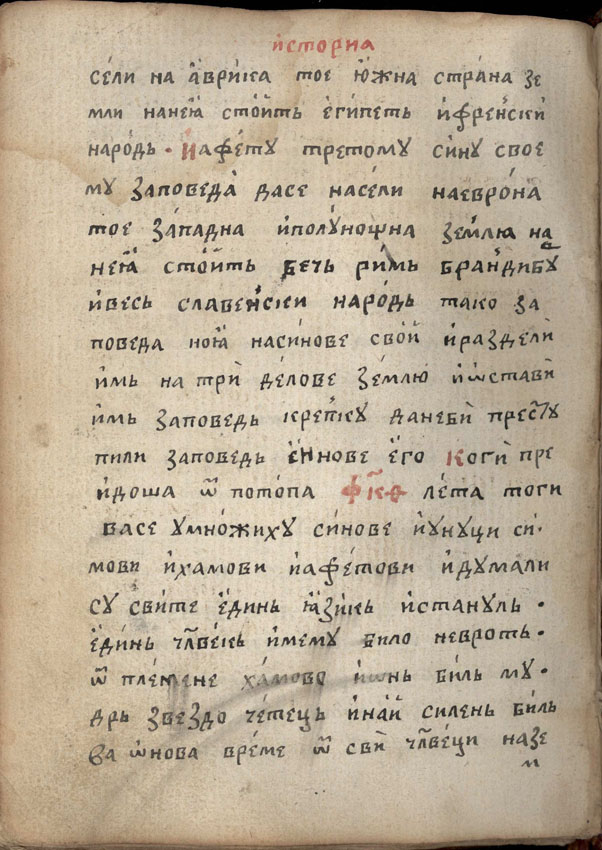 исторїа
сели на аврїка тое южна страна зе
мли нанею стоить египеть ифренски
народь · иафету третому сину свое
му заповеда дасе насели наеврона
тое западна иполунощна землю на
нею стоить бечь римь брандибу
ивесь славенски народь тако за
поведа ноіа насинове свои ираздели
имь на три делове землю иѡстави
имь заповедь крепку данеби престу
пили заповедь синнове его коги пре
идоша ѿ потопа фк҃ѳ лета тоги
васе умножиху синове иунуци си·
мови ихамови иафетови идумали
су свите единь ꙗзикь истануль ·
единь чл҃векь имему било невроть ·
ѿ племене хамово иѡнь биль му·
дрь звездо четець инаи силень биль
ва ѡнова време ѿ сви чл҃веци назе
м